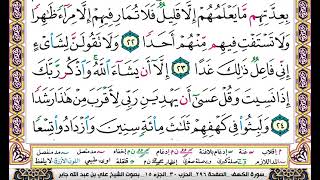 بِعِدَّتِهِم مَّا يَعْلَمُهُمْ إِلَّا قَلِيلٌ ۗ فَلَا تُمَارِ فِيهِمْ إِلَّا مِرَآءً ظَٰهِرًا
وَلَا تَسْتَفْتِ فِيهِم مِّنْهُمْ أَحَدًا ٢٢ وَلَا تَقُولَنَّ لِشَا۟ىْءٍ
إِنِّى فَاعِلٌ ذَٰلِكَ غَدًا ٢٣ إِلَّآ أَن يَشَآءَ ٱللَّهُ ۚ وَٱذْكُر رَّبَّكَ
إِذَا نَسِيتَ وَقُلْ عَسَىٰٓ أَن يَهْدِيَنِ رَبِّى لِأَقْرَبَ مِنْ هَٰذَا رَشَدًا
٢٤ وَلَبِثُوا۟ فِى كَهْفِهِمْ ثَلَٰثَ مِا۟ئَةٍ سِنِينَ وَٱزْدَادُوا۟ تِسْعًا
سورة الكهف الصفحة ٢٩٦ الجزء ١٥ بصوت الشيخ علي بن عبد الله جابر